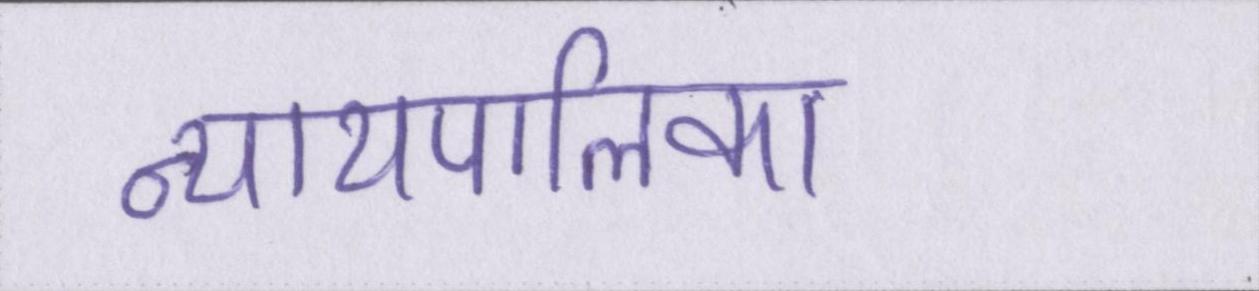 न्यायपालिका